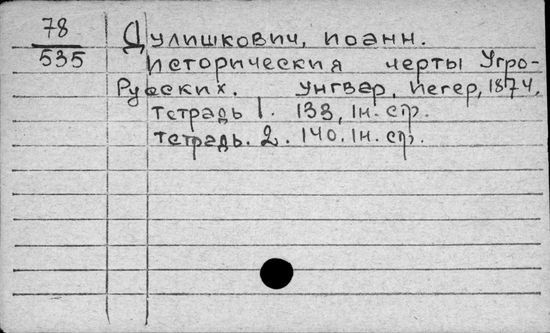 78
535
Дулишкович, иоанн.
исторические черты Угро-
Русских. Унгвер, иегер, 1874.
тетрадь 1. 133, 1н. стр.
тетрадь. 2. 140. 1н. стр.